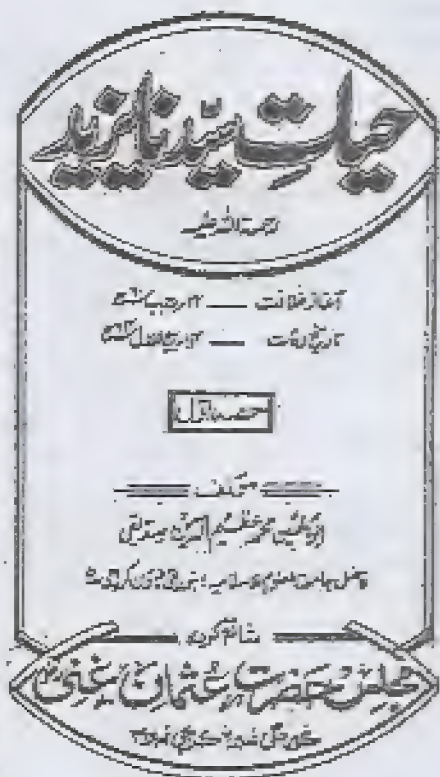 حیاتِ سیّدنا یزید
رحمۃ اللہ علیہ
آغاز خلافت — ۲۲ رجب ۶۰ھ
تاریخ وفات — ۱۴ ربیع الاول ۶۴ھ
حصہ اول
مؤلف
محمد عظیم الدین صدیقی
فاضل جامعۃ العلوم الاسلامیہ بنوری ٹاؤن کراچی
شائع کردہ
مجلس حضرت عثمان غنی
کراچی